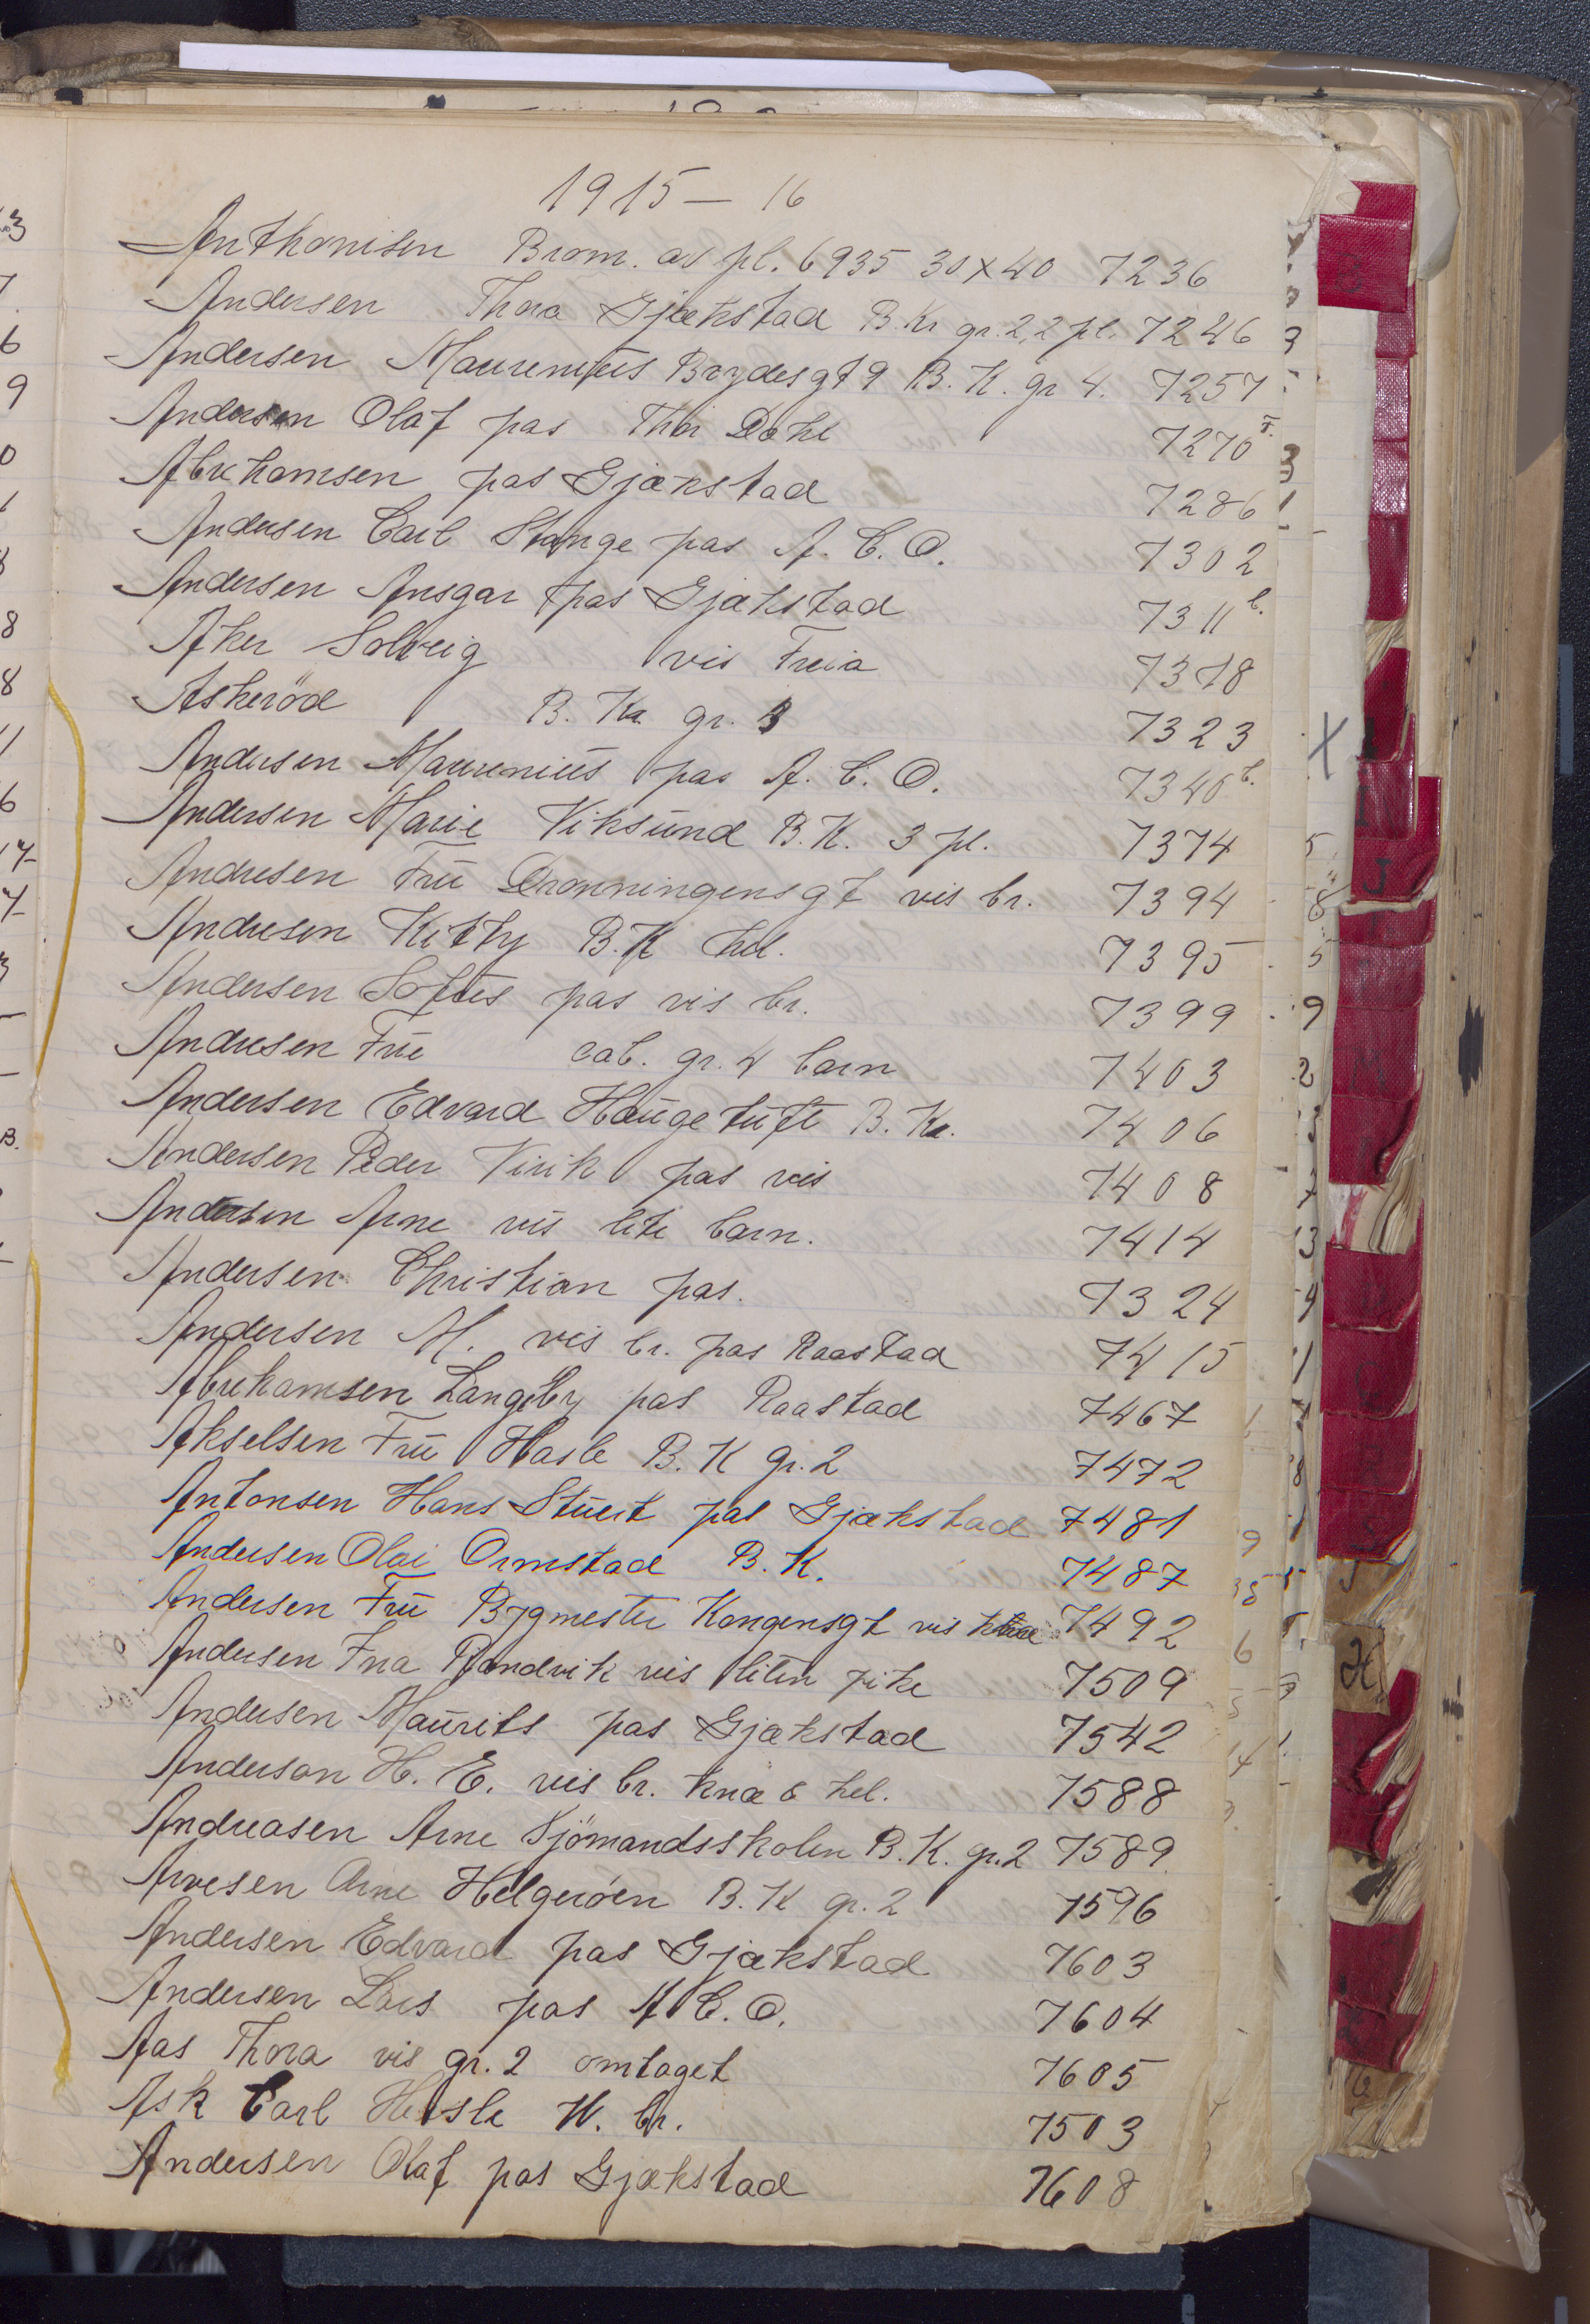 1915 – 16
Anthonisen Brom. av pl. 6935 30 x 40 7236
Andersen Thora Gjækstad B.Kr gr. 2, 2 pl. 7246
Andersen Maurenius Brydesgt 9 B.K. gr 4. 7257
Andersen Olaf pas Thor Dahl 7270 F.
Abrehamsen pas Gjækstad 7286
Andersen Carl Stange pas A.C.O. 7302
Andersen Ansgar pas Gjækstad 7311 b.
Aker Solveig vis Freia 7318
Askeröd B. Kr. gr. 3 7323
Andersen Maurenius pas A.C.O. 7340 b.
Andersen Marie Viksund B.K. 3 pl. 7374
Andresen Frü Dronningensgt vis br. 7394
Andresen Kitty B.K hel. 7395
Andersen Sofus pas vis br. 7399
Andresen Frü cab. gr. 4 barn 7403
Andersen Edvard Haugetuft B. Kr. 7406
Andersen Peder Virik pas vis 7408
Andersen Arne vis lite barn. 7414
Andersen Christian pas. 7324
Andersen M. vis br. pas Raastad 7415
Abrehamsen Langeby pas Raastad 7467
Akselsen Frü Hasle B.K gr. 2 7472
Antonsen Hans Stueit pas Gjækstad 7481
Andersen Olai Ormstad B.K. 7487
Andersen Frü Bygmester Kongensgt vis 7492
Andersen Fna Randvik vis liten pike 7509
Andersen Maurits pas Gjækstad 7542
Anderson H. E. vis br. knæ & hel. 7588
Andreasen Arne Sjömandsskolen B.K. gr. 2 7589
Arvesen Arne Helgeröen B.K gr. 2 7596
Andersen Edvard pas Gjækstad 7603
Andersen Lars pas A.C.O. 7604
Aas Thora vis gr. 2 omtaget 7605
Ask Carl Hasle W. br. 7503
Andersen Olaf pas Gjækstad 7608
B
J
H